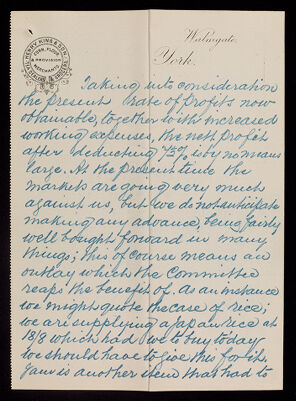 HENRY KING & SON,
CORN, FLOUR
& PROVISION
MERCHANTS
Walmgate,
York.
Taking into consideration
the present Rate of profits now
obtainable, together with increased
working expenses, the nett profit
after deducting 7½% is by no means
large. At the present time the
markets are going very much
against us, but we do not anticipate
making any advance, being fairly
well bought forward in many
things; this of course means an
outlay which the Committee
reaps the benefit of. As an instance
we might quote the case of rice;
we are supplying a Japan rice at
18/8 which had we to buy today
we should have to give this for it.
Jam is another item that had to